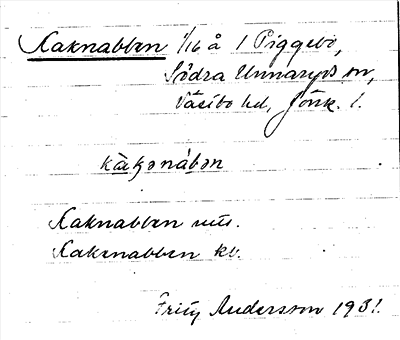 Kaknabben 1/16 å 1 Piggebo,
Södra Unnaryds sn,
Västbo hd, Jönk. l.
kàkənábən
Kaknabben uts.
Kakenabben kv.
Fritz Andersson 1931.